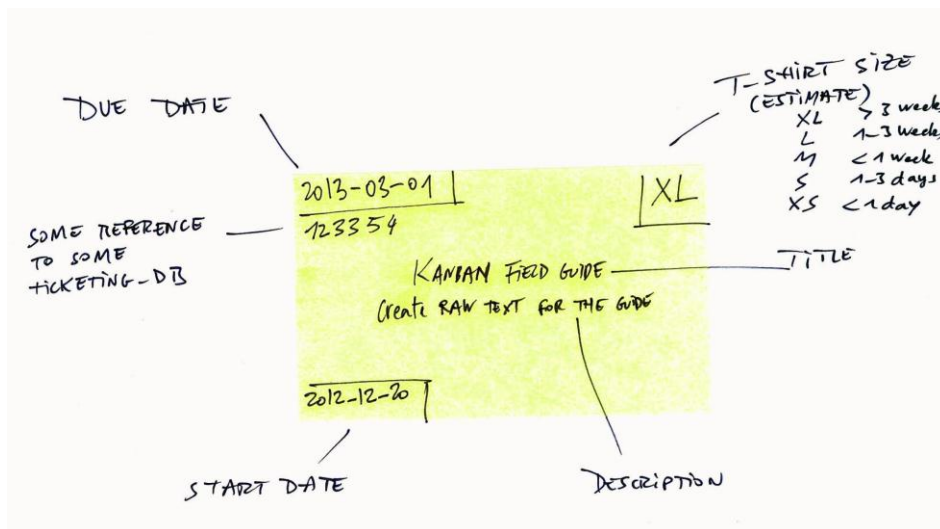 DUE DATE
T-SHIRT SIZE
(ESTIMATE)
XL > 3 weeks
L 1-3 weeks
M < 1 week
S 1-3 days
XS < 1 day
2013-03-01
XL
SOME REFERENCE
TO SOME
TICKETING-DB
123354
KANBAN FIELD GUIDE
TITLE
Create RAW TEXT FOR THE GUIDE
2012-12-20
START DATE
DESCRIPTION